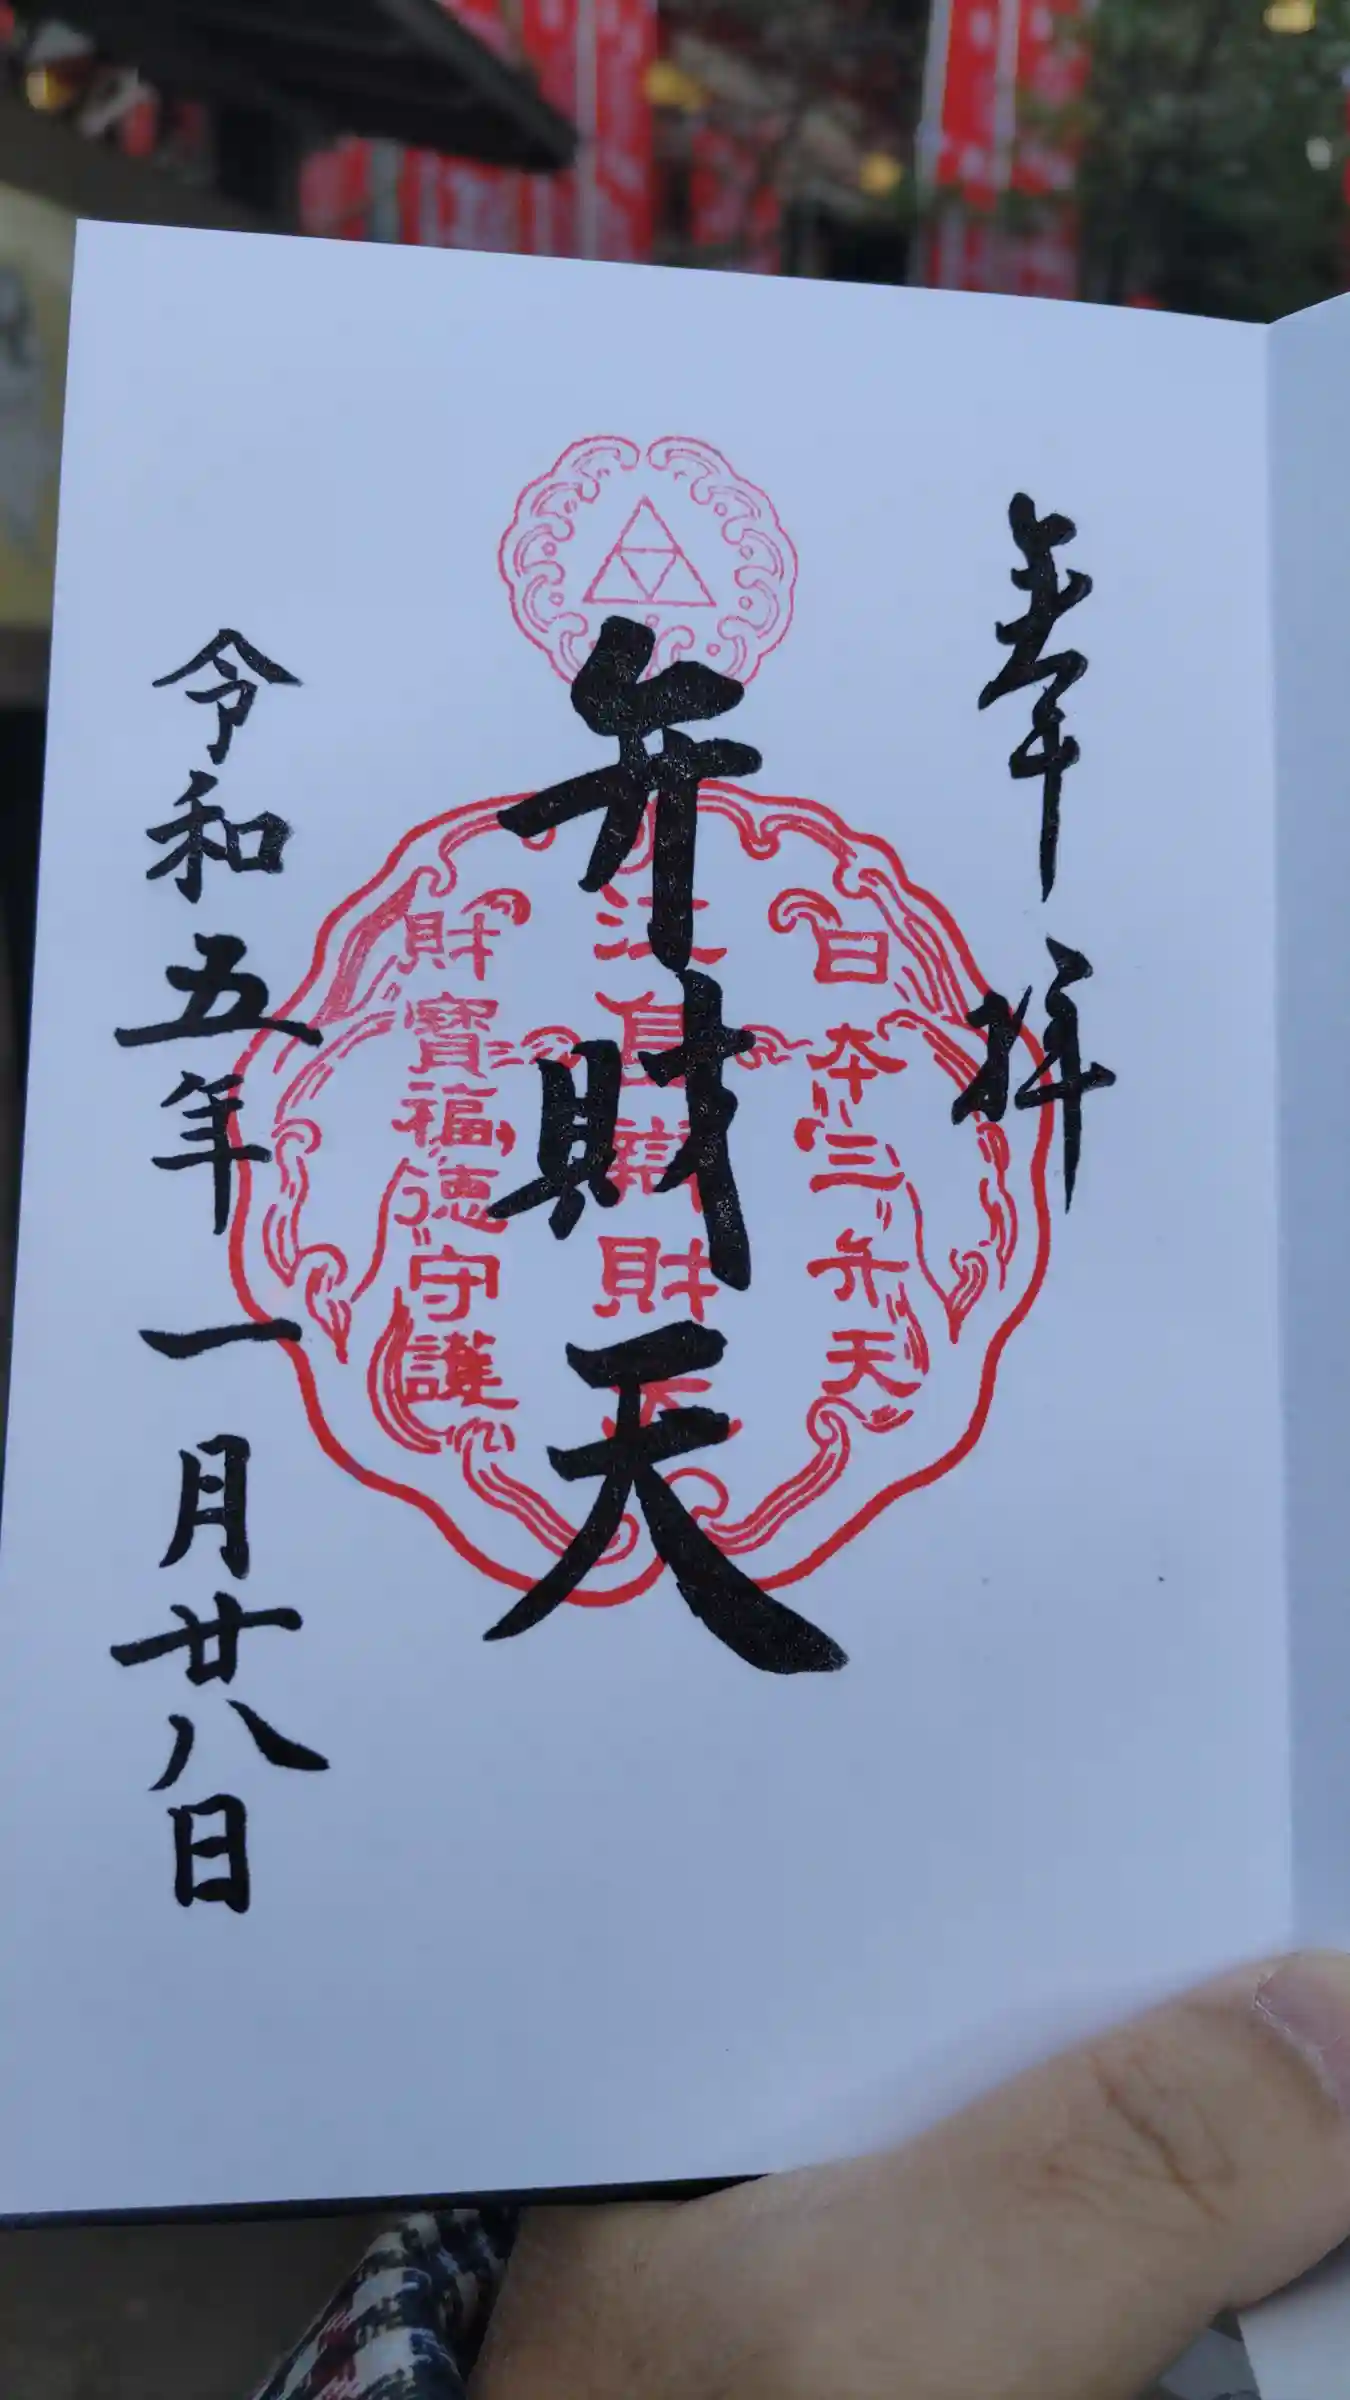 奉拝
日本三弁天
江島辯財天
財寶福徳守護
弁財天
令和五年一月廿八日